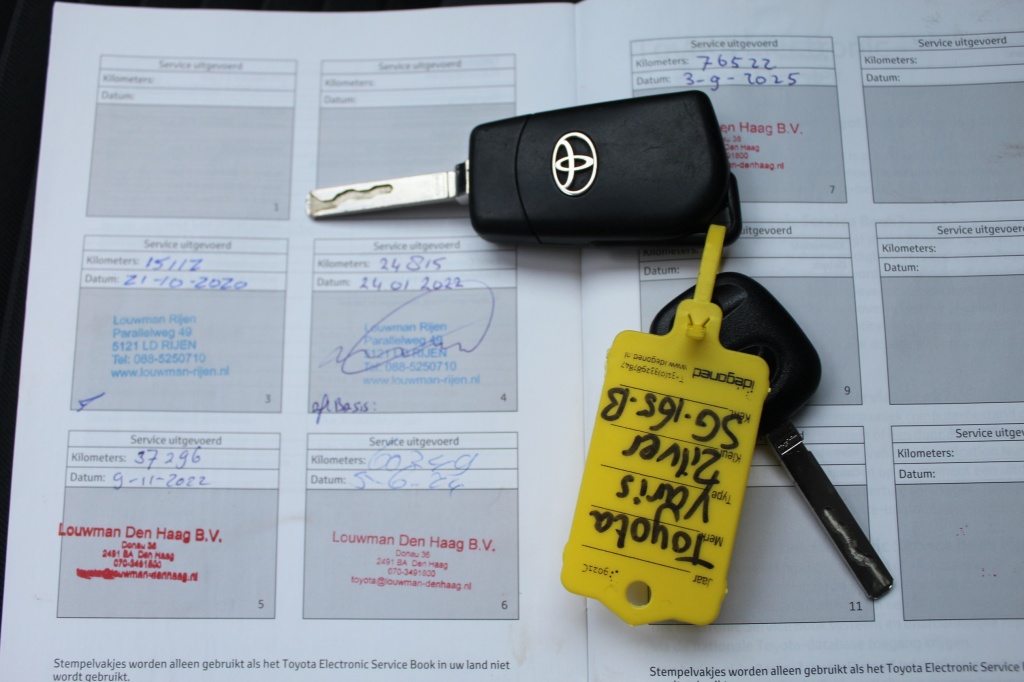 Service uitgevoerd
Kilometers:
Datum:
1
Service uitgevoerd
Kilometers:
Datum:
Service uitgevoerd
Kilometers: 15112
Datum: 21-10-2020
Louwman Rijen
Parallelweg 49
5121 LD RIJEN
Tel: 088-5250710
www.louwman-rijen.nl
3
Service uitgevoerd
Kilometers: 24815
Datum: 24 01 2022
Louwman Rijen
Parallelweg 49
5121 LD RIJEN
Tel: 088-5250710
www.louwman-rijen.nl
Basis:
4
Service uitgevoerd
Kilometers: 37296
Datum: 9-11-2022
Louwman Den Haag B.V.
Donau 36
2491 BA Den Haag
070-3491800
louwman-denhaag.nl
5
Service uitgevoerd
Kilometers:
Datum:
Louwman Den Haag B.V.
Donau 36
2491 BA Den Haag
070-3491800
toyota@louwman-denhaag.nl
6
Stempelvakjes worden alleen gebruikt als het Toyota Electronic Service Book in uw land niet
wordt gebruikt.
Service uitgevoerd
Kilometers: 76522
Datum: 3-9-2025
en Haag B.V.
Den Haag
-denhaag.nl
7
Service uitgevoerd
Kilometers:
Datum:
Kilometers:
Datum:
9
Service uitgevoerd
Kilometers:
Datum:
11
Service uitgevoerd
Kilometers:
Datum:
Stempelvakjes worden alleen gebruikt als het Toyota Electronic Service
jaar
Merk Toyota
Type Yaris
Kleur Zilver
Kent. SG-165-B
idegoned
www.idegoned.nl